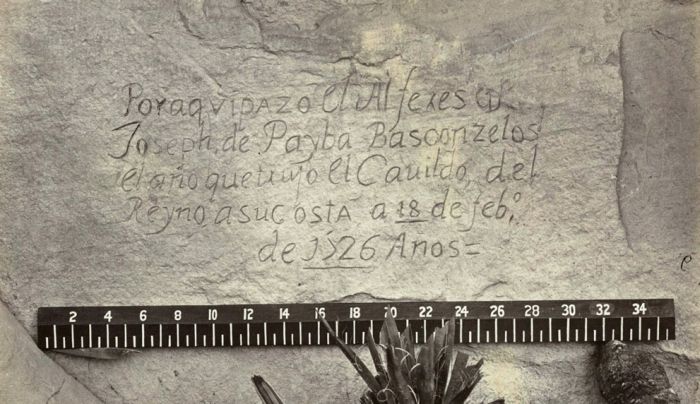 Por aqui pazo el Alferes Dn
Joseph de Payba Basconzelos
el año que trujo el Cauildo del
Reyno a su costa a 18 de feb.º
de 1526 Anos=
2 4 6 8 10 12 14 16 18 20 22 24 26 28 30 32 34